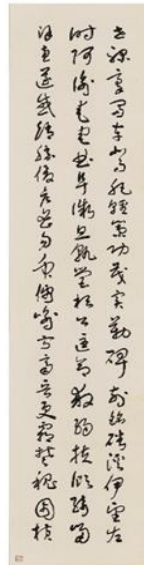 世祿侈富車駕肥輕策功茂實勒碑刻銘磻溪伊尹佐
時阿衡奄宅曲阜微旦孰營桓公匡合濟弱扶傾綺迴
漢惠說感武丁俊乂密勿多士寔寧晉楚更霸趙魏困橫